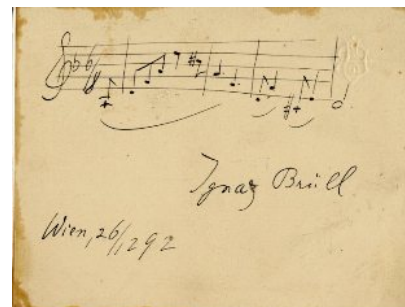 Ignaz Brüll
Wien, 26/12 92